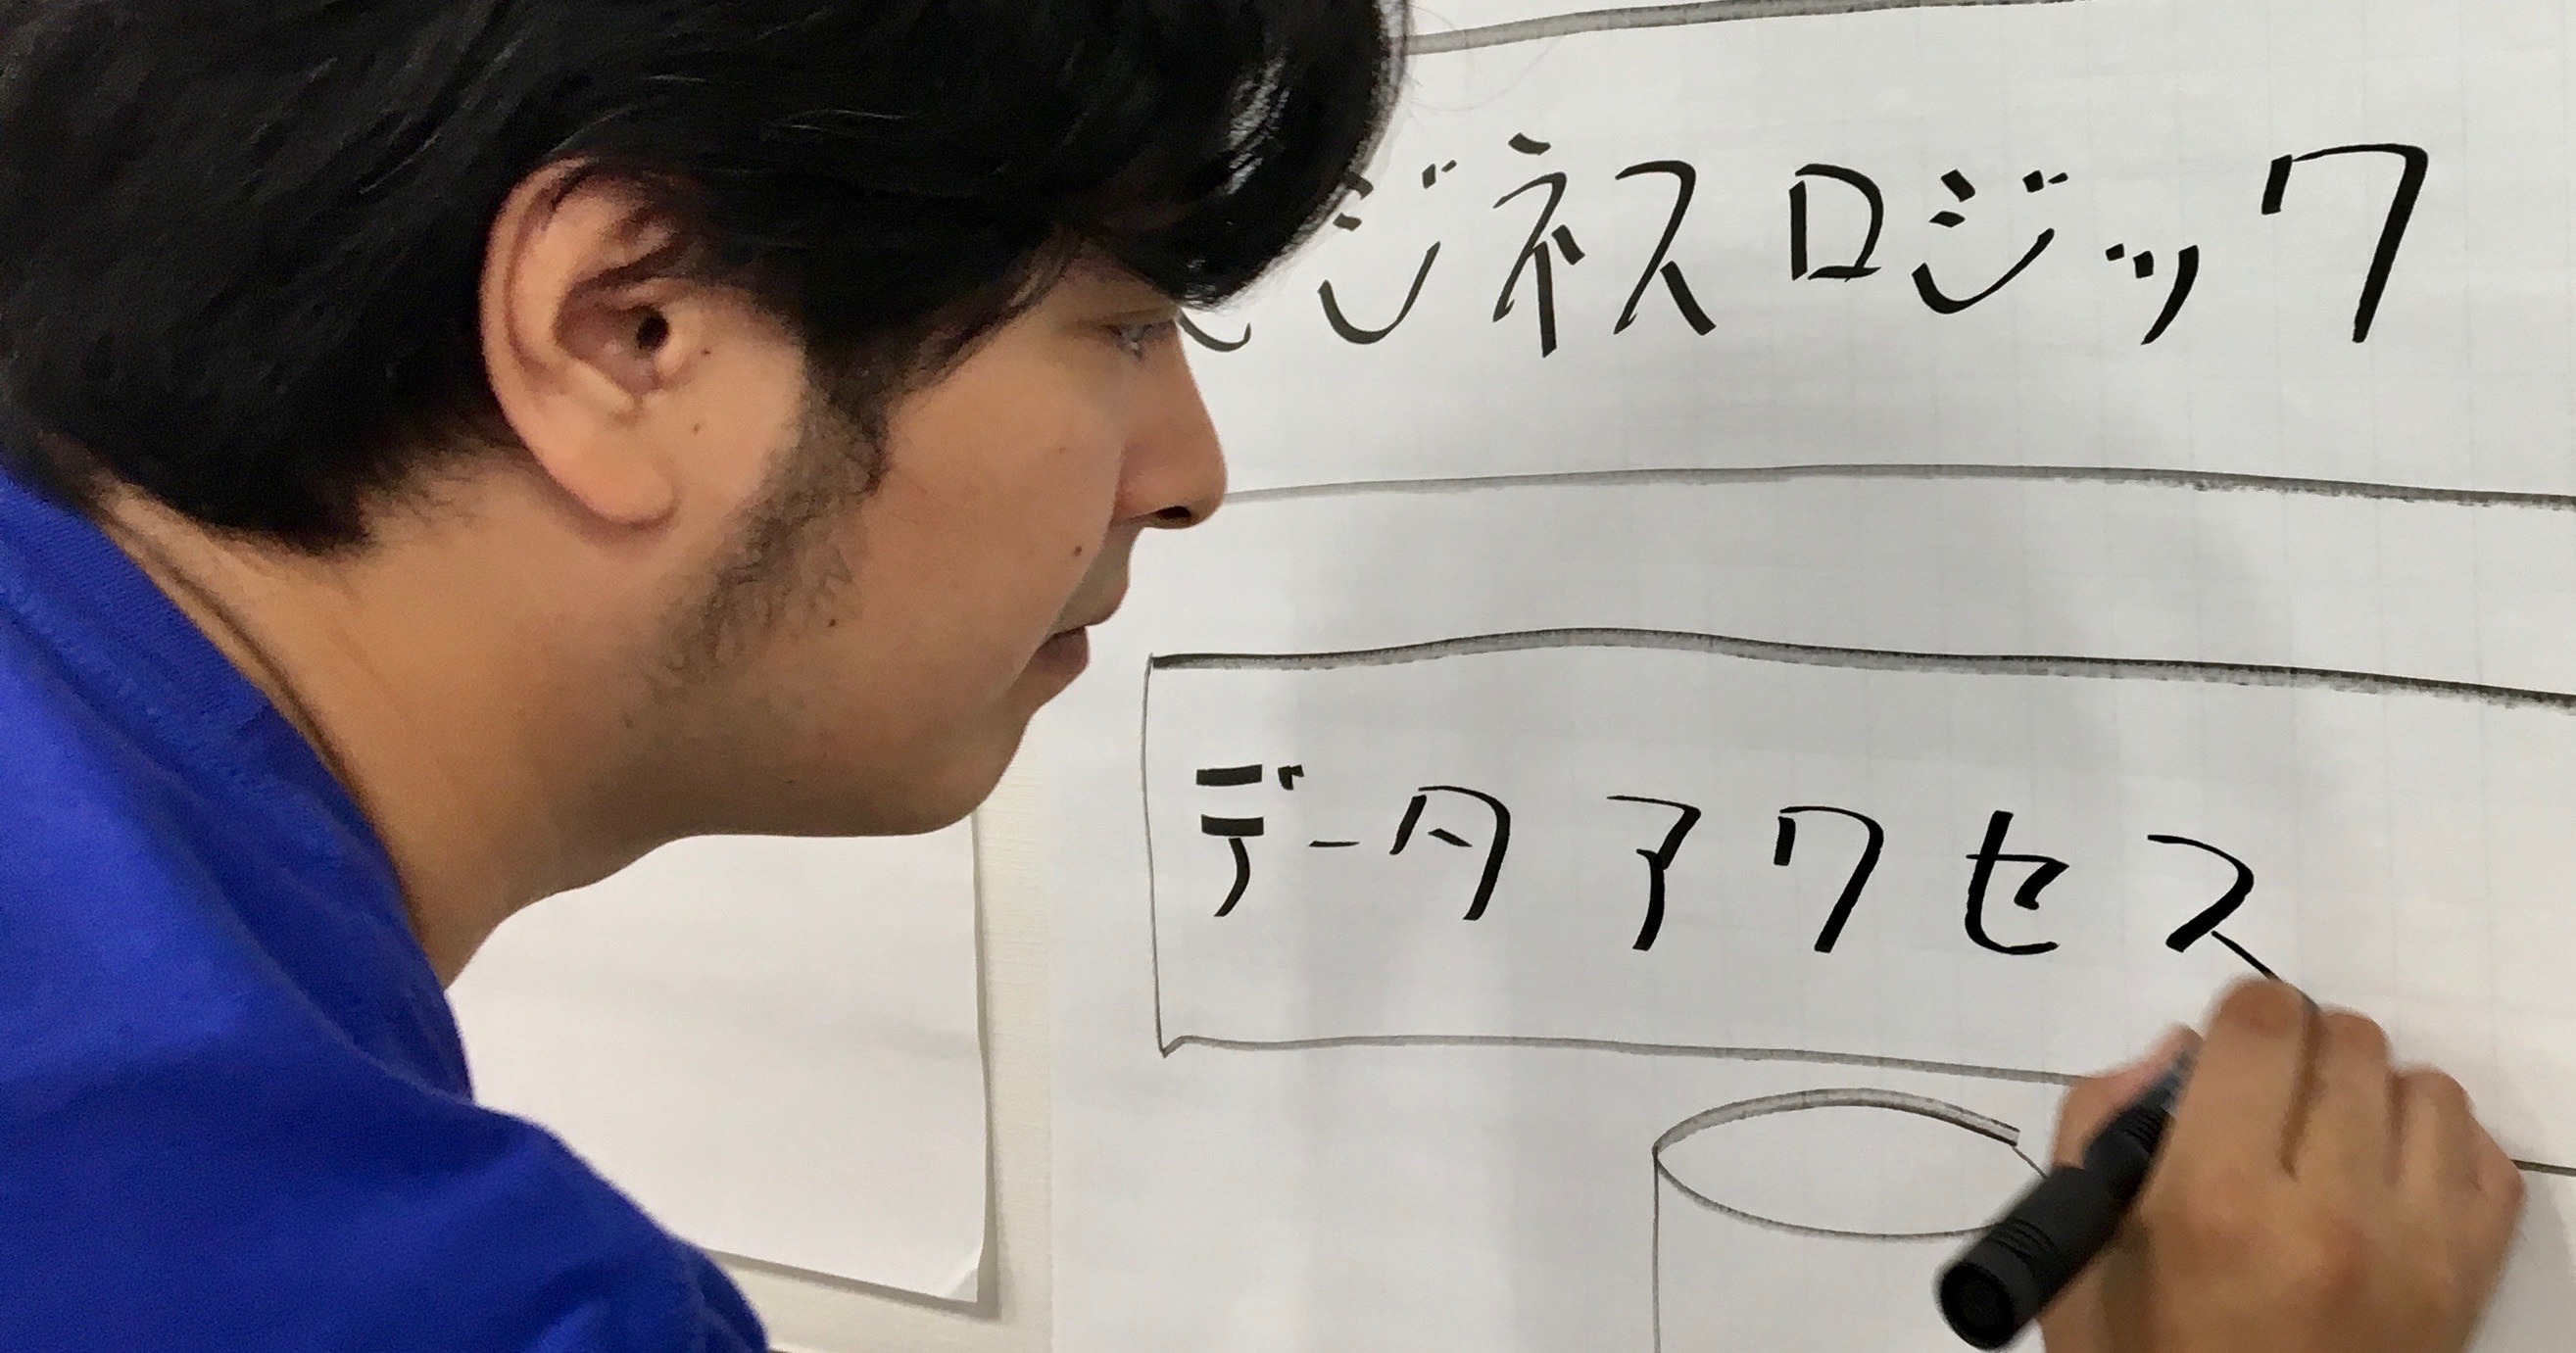 ビジネスロジック
データアクセス